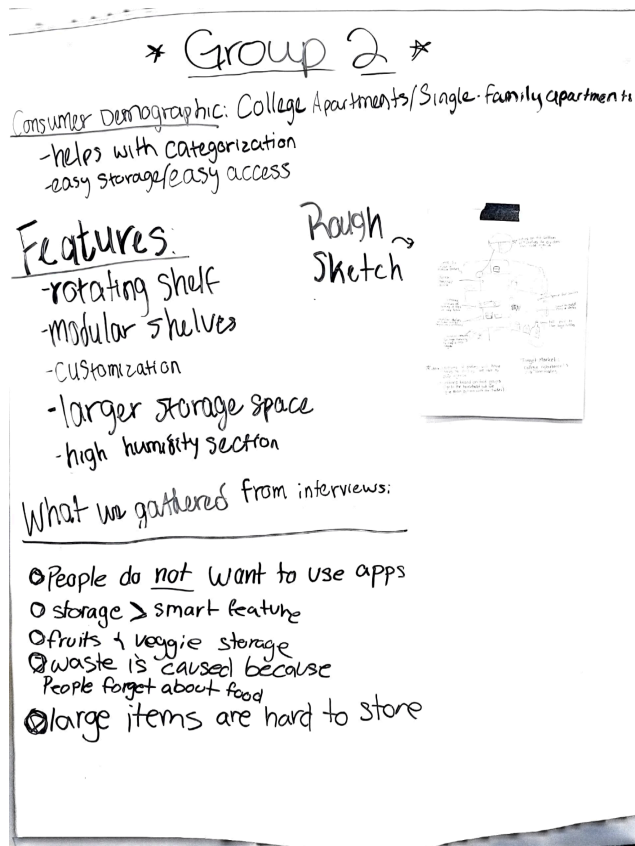 * Group 2 *
Consumer Demographic: College Apartments/Single-family apartments
-helps with categorization
-easy storage/easy access
Features:
-rotating shelf
-modular shelves
-customization
-larger storage space
-high humidity section
Rough
Sketch
Target Market:
What we gathered from interviews:
People do not want to use apps
storage > smart feature
fruits & veggie storage
waste is caused because
People forget about food
large items are hard to store